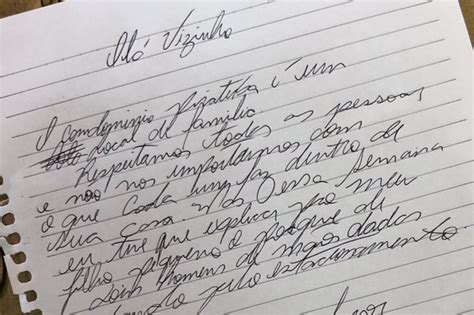 Aló Vizinho
O condominio Piratika é um
local de familia
Respeitamos todas as pessoas
e não nos importamos com
o que cada um faz dentro de
sua casa. Mas essa semana
eu tive que explicar pro meu
filho pequeno o porque de
dois homens de mãos dadas
pelo estacionamento.